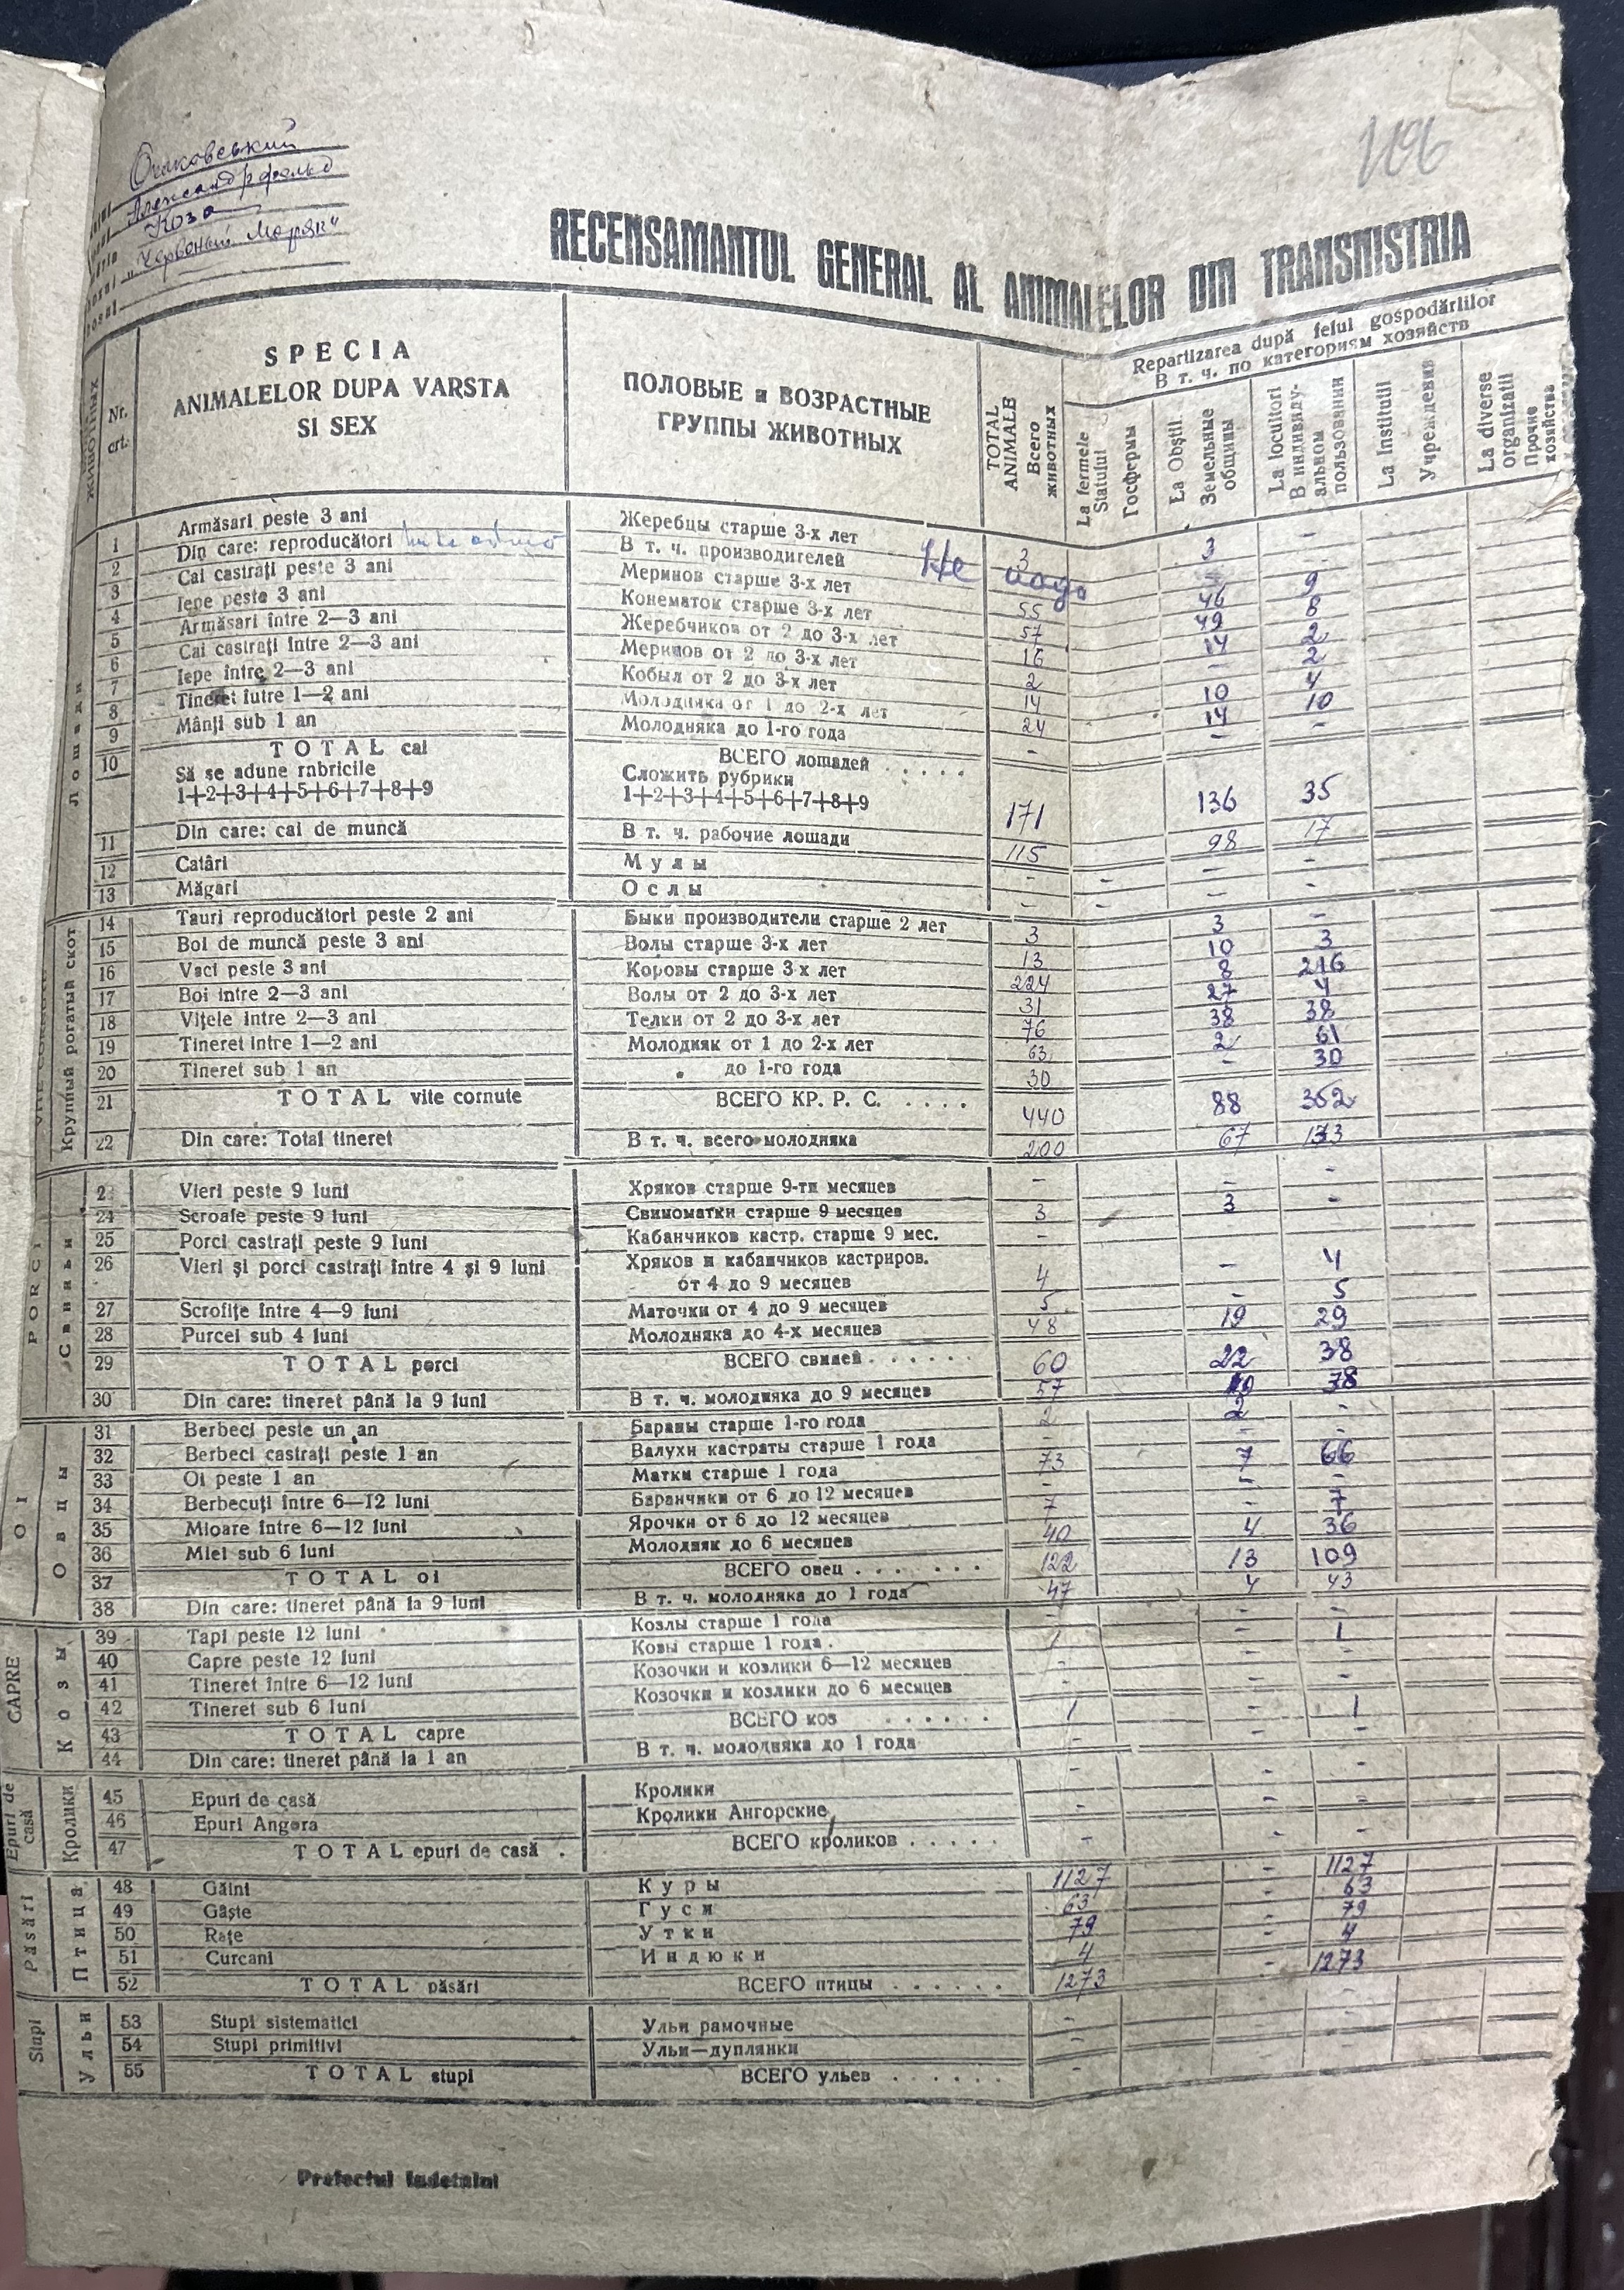 106
Очаковський
Александрфельд
Коза
„Червоный Моряк"
RECENSAMANTUL GENERAL AL ANIMALELOR DIN TRANSNISTRIA
животных
Nr. crt.
SPECIA ANIMALELOR DUPA VARSTA SI SEX
ПОЛОВЫЕ и ВОЗРАСТНЫЕ ГРУППЫ ЖИВОТНЫХ
TOTAL ANIMALE Всего животных
Repartizarea după felul gospodăriilor
В т. ч. по категориям хозяйств
La fermele Statului Госфермы
La Obştii Земельные общины
La locuitori В индивидуальном пользовании
La Institutii Учреждения
La diverse organizatii Прочие хозяйства
Лошади
1 Armăsari peste 3 ani Жеребцы старше 3-х лет 3 3 -
2 Din care: reproducători В т. ч. производителей Не надо
3 Cai castraţi peste 3 ani Меринов старше 3-х лет 55 46 9
4 Iepe peste 3 ani Конематок старше 3-х лет 57 49 8
5 Armăsari între 2—3 ani Жеребчиков от 2 до 3-х лет 16 14 2
6 Cai castraţi între 2—3 ani Меринов от 2 до 3-х лет 2 - 2
7 Iepe între 2—3 ani Кобыл от 2 до 3-х лет 14 10 4
8 Tineret îutre 1—2 ani Молодняка от 1 до 2-х лет 24 14 10
9 Mânji sub 1 an Молодняка до 1-го года - - -
10 TOTAL cai ВСЕГО лошадей . . . . .
Să se adune rnbricile Сложить рубрики
1+2+3+4+5+6+7+8+9 1+2+3+4+5+6+7+8+9 171 136 35
11 Din care: cai de muncă В т. ч. рабочие лошади 115 98 17
12 Catâri Мулы - - - -
13 Măgari Ослы - - - -
Крупный рогатый скот
14 Tauri reproducători peste 2 ani Быки производители старше 2 лет 3 3 -
15 Boi de muncă peste 3 ani Волы старше 3-х лет 13 10 3
16 Vaci peste 3 ani Коровы старше 3 х лет 224 8 216
17 Boi intre 2—3 ani Волы от 2 до 3-х лет 31 27 4
18 Viţele intre 2—3 ani Телки от 2 до 3-х лет 76 38 38
19 Tineret intre 1—2 ani Молодняк от 1 до 2-х лет 63 2 61
20 Tineret sub 1 an „ до 1-го года 30 - 30
21 TOTAL vite cornute ВСЕГО КР. Р. С. . . . . 440 88 352
22 Din care: Total tineret В т. ч. всего молодняка 200 67 133
PORCI Свиньи
2 Vieri peste 9 luni Хряков старше 9-ти месяцев - - -
24 Scroafe peste 9 luni Свиноматки старше 9 месяцев 3 3 -
25 Porci castraţi peste 9 luni Кабанчиков кастр. старше 9 мес. -
26 Vieri şi porci castraţi între 4 şi 9 luni Хряков и кабанчиков кастриров.
от 4 до 9 месяцев 4 - 4
27 Scrofiţe între 4—9 luni Маточки от 4 до 9 месяцев 5 - 5
28 Purcei sub 4 luni Молодняка до 4-х месяцев 48 19 29
29 TOTAL porci ВСЕГО свиней . . . . . 60 22 38
30 Din care: tineret până la 9 luni В т. ч. молодняка до 9 месяцев 57 19 38
OI Овцы
31 Berbeci peste un an Бараны старше 1-го года 2 2 -
32 Berbeci castraţi peste 1 an Валухи кастраты старше 1 года - - -
33 Oi peste 1 an Матки старше 1 года 73 7 66
34 Berbecuţi între 6—12 luni Баранчики от 6 до 12 месяцев - - -
35 Mioare între 6—12 luni Ярочки от 6 до 12 месяцев 7 - 7
36 Miei sub 6 luni Молодняк до 6 месяцев 40 4 36
37 TOTAL oi ВСЕГО овец . . . . . . 122 13 109
38 Din care: tineret până la 9 luni В т. ч. молодняка до 1 года 47 4 43
CAPRE Козы
39 Tapi peste 12 luni Козлы старше 1 года - - -
40 Capre peste 12 luni Ковы старше 1 года . 1 - 1
41 Tineret între 6—12 luni Козочки и козлики 6—12 месяцев - - -
42 Tineret sub 6 luni Козочки и козлики до 6 месяцев - - -
43 TOTAL capre ВСЕГО коз . . . . . . 1 - 1
44 Din care: tineret până la 1 an В т. ч. молодняка до 1 года - - -
Epuri de casă Кролики
45 Epuri de casă Кролики - - -
46 Epuri Angora Кролики Ангорские - - -
47 TOTAL epuri de casă . ВСЕГО кроликов . . . . . - - -
Păsări Птица
48 Găini Куры 1127 - 1127
49 Gâşte Гуси 63 - 63
50 Raţe Утки 79 - 79
51 Curcani Индюки 4 - 4
52 TOTAL păsări ВСЕГО птицы . . . . . . 1273 - 1273
Stupi Ульи
53 Stupi sistematici Ульи рамочные - - -
54 Stupi primitivi Ульи—дуплянки - - -
55 TOTAL stupi ВСЕГО ульев . . . . . . - - -
Prefectul Iudetului